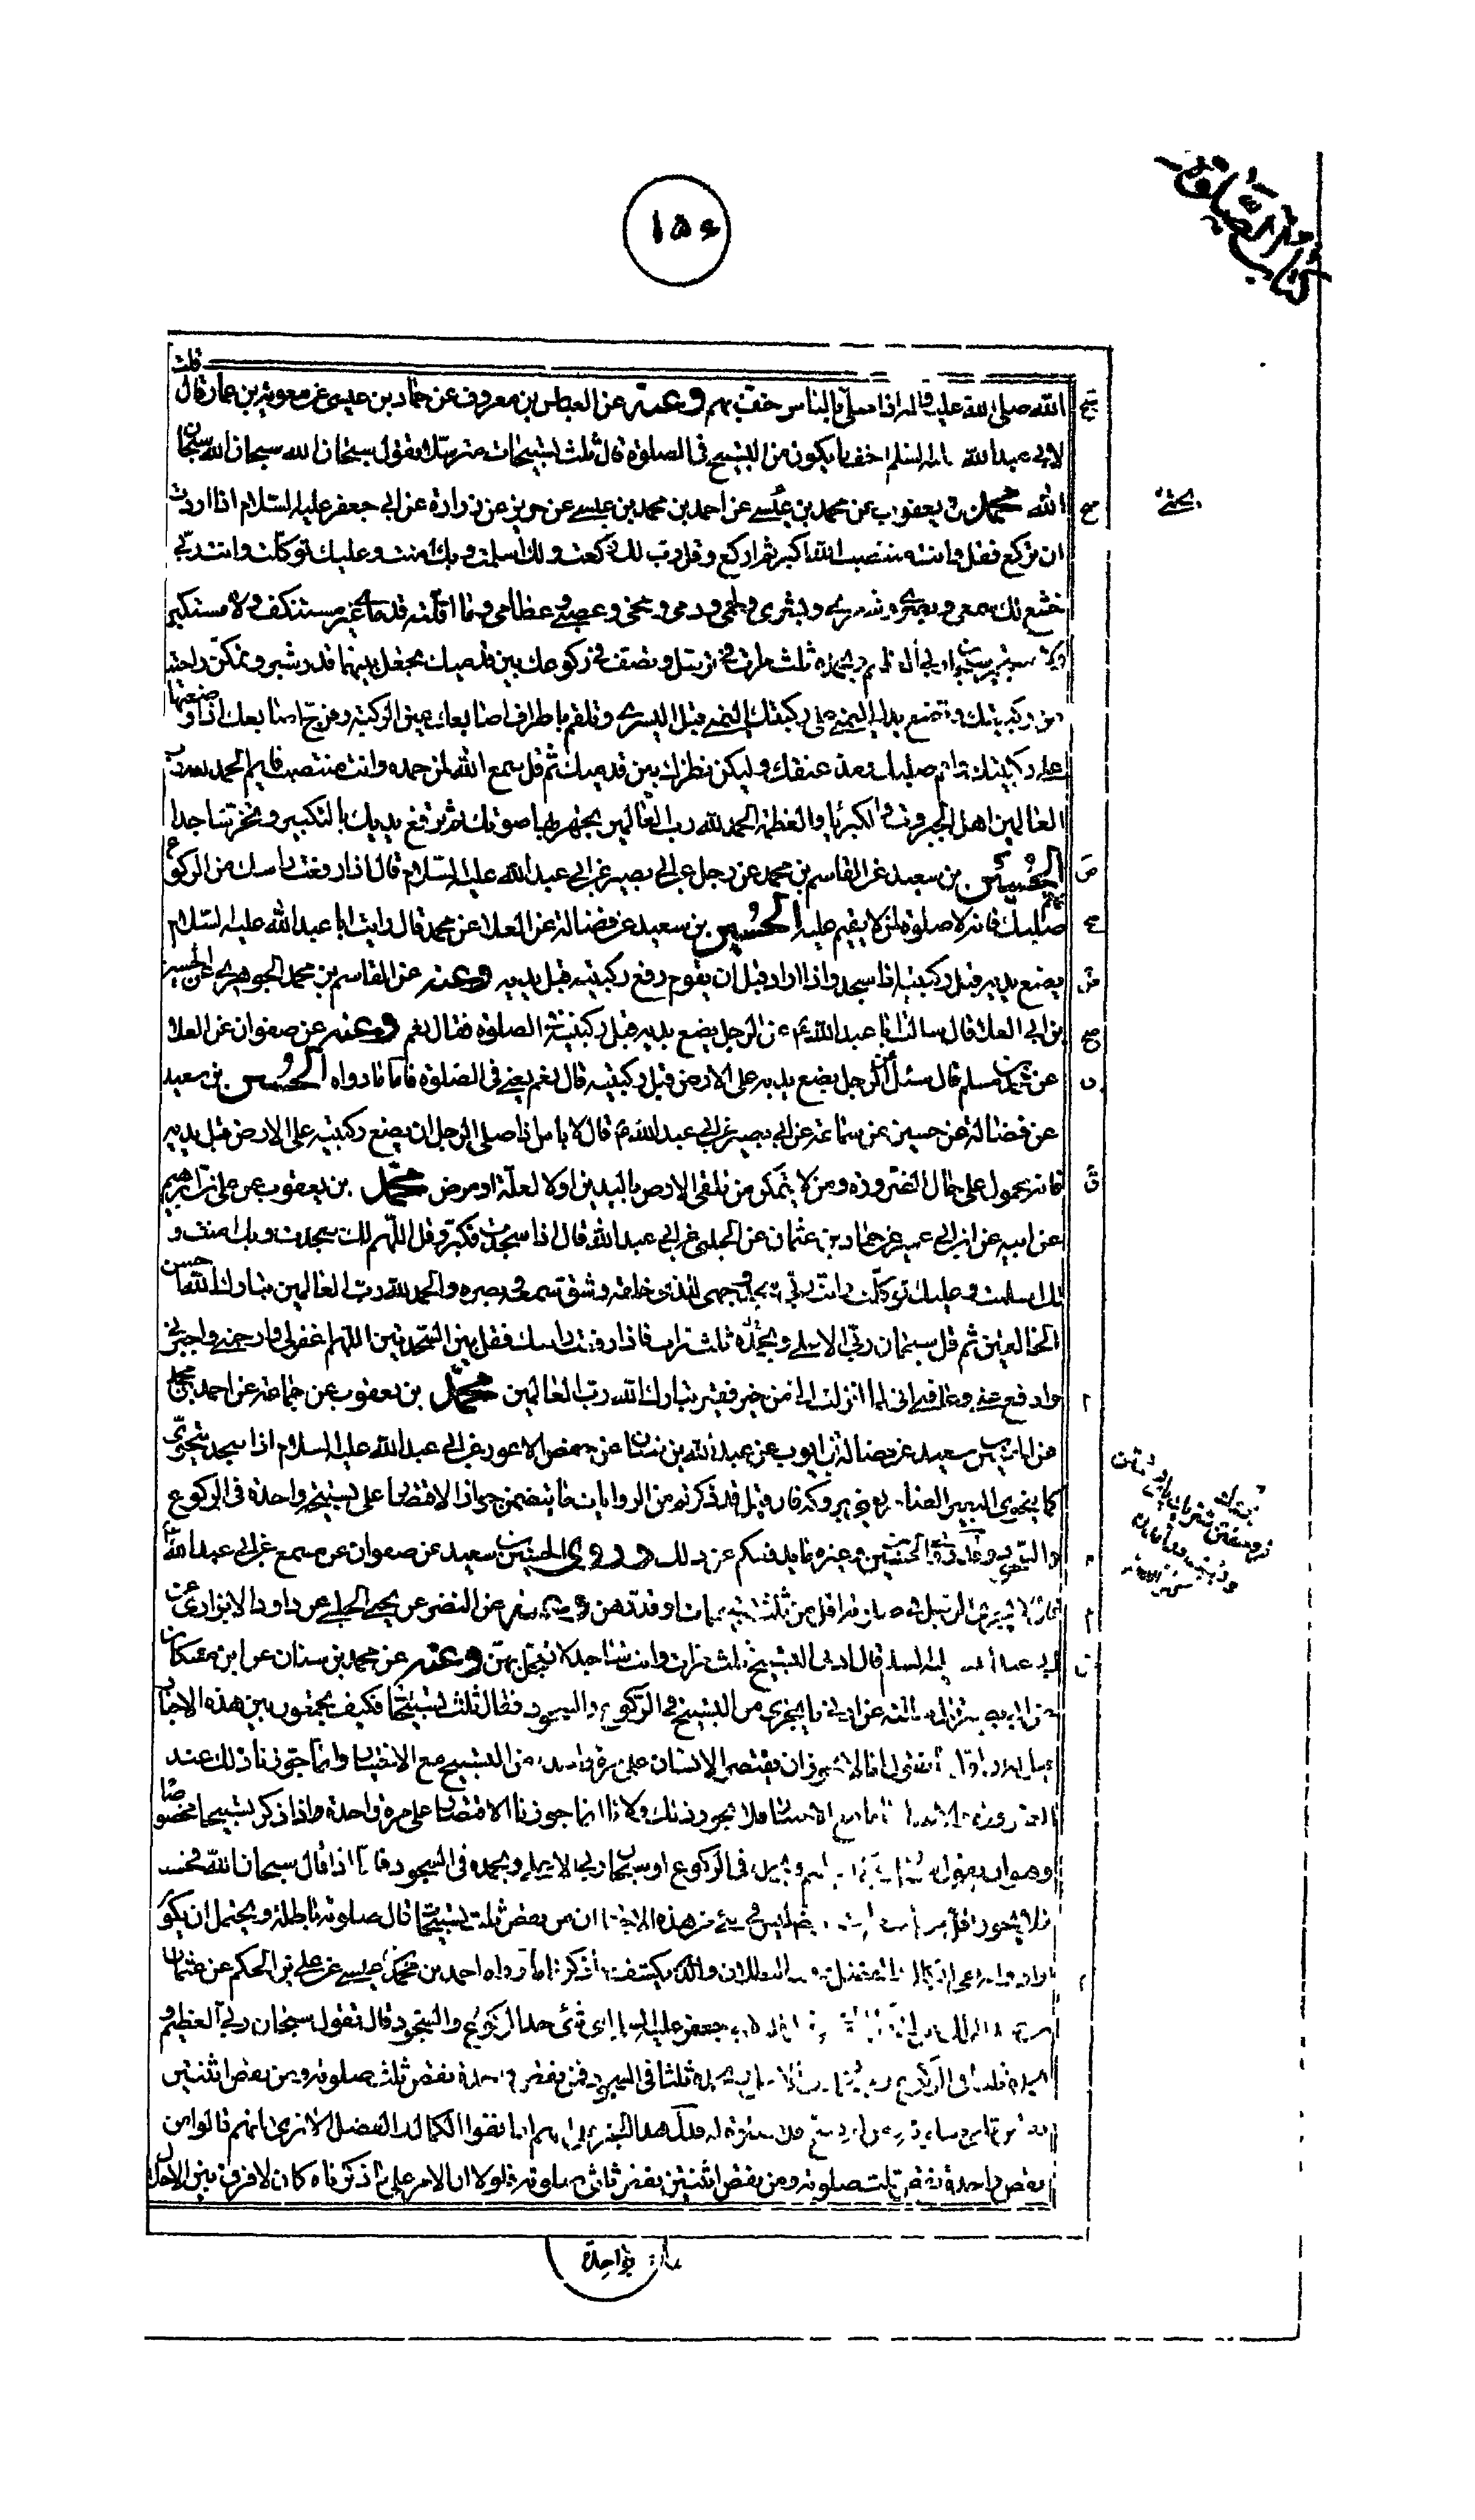 كتاب الصلوة
١٥٤
قلت
الله صلى الله عليه واله اذا صلى بالناس خفف بهم وعنه عن العباس بن معروف عن حماد بن عيسى عن معوية بن عمار قال
لابى عبد الله عليه السلم اخف ما يكون من التسبيح فى الصلوة قال ثلث تسبيحات مترسلا يقول سبحان الله سبحان الله سبحان
الله محمد بن يعقوب عن محمد بن عن احمد بن محمد بن عيسى عن حريز عن زرارة عن ابى جعفر عليه السلام اذا اردت
ان تركع فقل وانت منتصب الله اكبر ثم اركع وقل رب لك ركعت ولك اسلمت وبك امنت وعليك توكلت وانت ربى
خشع لك سمعى وبصرى وشعرى وبشرى ولحمى ودمى ومخى وعصبى وعظامى وما اقلته قدماى غير مستنكف ولا مستكبر
ولا سبحان ربى العظيم وبحمده ثلث مرات فى ترتيل وتصف فى ركوعك بين قدميك تجعل بينهما قدر شبر وتمكن راحتيك
من ركبتيك وتضع يدك اليمنى على ركبتك اليمنى قبل اليسرى وتلقم باطراف اصابعك عين الركبة وفرج اصابعك اذا وضعتها
على ركبتيك واقم صلبك ومد عنقك وليكن نظرك بين قدميك ثم قل سمع الله لمن حمده وانت منتصب قايم الحمد لله رب
العالمين اهل الجبروت والكبرياء والعظمة الحمد لله رب العالمين تجهر بها صوتك ثم ترفع يديك بالتكبير وتخر ساجدا
الحسين بن سعيد عن القاسم بن محمد عن رجل عن ابى بصير عن ابى عبد الله عليه السلام قال اذا رفعت راسك من الركوع فاقم
صلبك فانه لا صلوة لمن لا يقيم صلبه الحسين بن سعيد عن فضالة عن العلا عن محمد قال رايت ابا عبد الله عليه السلام
يضع يديه قبل ركبتيه اذا سجد واذا اراد ان يقوم رفع ركبتيه قبل يديه وعنه عن القاسم بن محمد الجوهرى عن الحسين
بن ابى العلا قال سالت ابا عبد الله ع عن الرجل يضع يديه قبل ركبتيه فى الصلوة فقال نعم وعنه عن صفوان عن العلا
عن محمد بن مسلم قال سئل عن الرجل يضع يديه على الارض قبل ركبتيه قال نعم يعنى فى الصلوة فاما ما رواه الحسين بن سعيد
عن فضالة عن حسين عن سماعة عن ابى بصير عن ابى عبد الله ع قال لا باس اذا صلى الرجل ان يضع ركبتيه على الارض قبل يديه
فانه محمول على حال الضرورة ومن لا يتمكن من تلقى الارض باليدين اولا لعلة او مرض محمد بن يعقوب عن على بن ابراهيم
عن ابيه عن ابن ابى عمير عن حماد بن عثمان عن الحلبى عن ابى عبد الله قال اذا سجدت فكبر وقل اللهم لك سجدت وبك امنت و
لك اسلمت وعليك توكلت وانت ربى سجد وجهى للذى خلقه وشق سمعه وبصره والحمد لله رب العالمين تبارك الله احسن
الخالقين ثم قل سبحان ربى الاعلى وبحمده ثلث مرات فاذا رفعت راسك فقل بين السجدتين اللهم اغفر لى وارحمنى واجبرنى
وادفع عنى وعافنى انى لما انزلت الى من خير فقير تبارك الله رب العالمين محمد بن يعقوب عن جماعة عن احمد بن محمد
عن الحسين بن سعيد عن فضالة بن ايوب عن عبد الله بن سنان عن حفص الاعور عن ابى عبد الله عليه السلام اذا سجد يتخوى
كما يتخوى البعير الضامر يعنى بروكه فان قيل قد ذكرتم من الروايات ما يتضمن جواز الاقتصار على تسبيحة واحدة فى الركوع
والسجود وقد روى الحسين وغيره ما يدفعكم عن ذلك روى الحسين بن سعيد عن صفوان عن مسمع عن ابى عبد الله
قال لا يجزى الرجل فى صلوته اقل من ثلث تسبيحات او قدرهن وعنه عن النضر عن يحيى الحلبى عن داود الابزارى عن
ابى عبد الله عليه السلم قال ادنى التسبيح ثلث مرات وانت ساجد لا تعجل بهن وعنه عن محمد بن سنان عن ابن مسكان
عن ابى بصير قال سالته عن ادنى ما يجزى من التسبيح فى الركوع والسجود فقال ثلث تسبيحات فكيف تجمعون بين هذه الاخبار
ان يقتصر الانسان على مرة واحدة من التسبيح مع الاختيار وانما جوزنا ذلك عند
الضرورة فلا يجوز ذلك ولانا انما جوزنا الاقتصار على مرة واحدة اذا ذكر تسبيحا مخصوصا
وهو ان يقول سبحان ربى العظيم وبحمده فى الركوع او سبحان ربى الاعلى وبحمده فى السجود فاما اذا قال سبحان الله فحسب
فلا يجوز اقل من ليس فى شئ من هذه الاخبار ان من نقص ثلث تسبيحات قال صلوته باطلة ويحتمل ان يكون
ارادوا والذى يكشف عما ذكرناه ما رواه احمد بن محمد بن عيسى عن على بن الحكم عن عثمان
جعفر عليه السلم اى شئ حد الركوع والسجود قال تقول سبحان ربى العظيم و
بحمده ثلثا فى الركوع وسبحان ربى الاعلى وبحمده ثلثا فى السجود فمن نقص واحدة نقص ثلث صلوته ومن نقص اثنتين
نقص ثلثى صلوته ومن لم يسبح فلا صلوة له انما نفوا الكمال والفضل الا ترى انهم قالوا من
نقص واحدة نقص ثلث صلوته ومن نقص اثنتين نقص ثلثى صلوته فلولا ان الامر على ما ذكرناه كان لا فرق بين الاخلال
واحدة